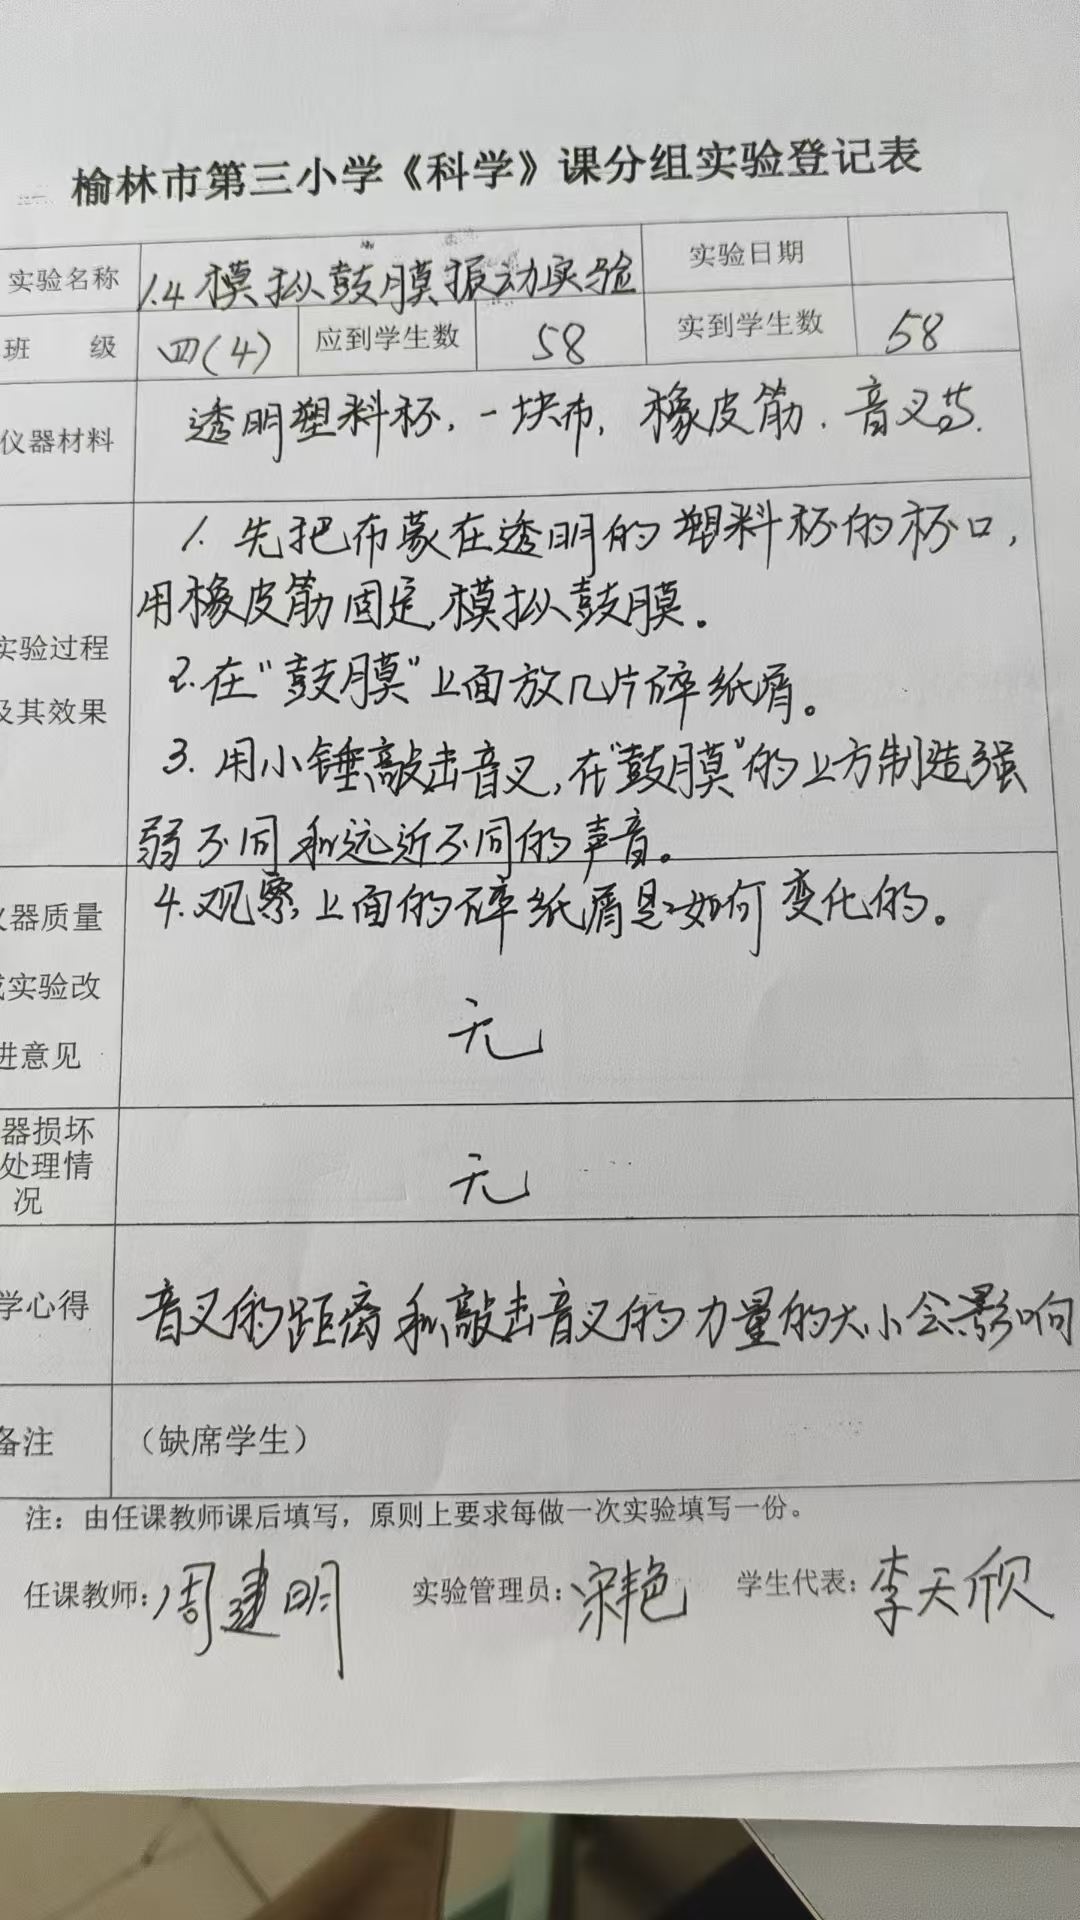 榆林市第三小学《科学》课分组实验登记表
实验名称 1.4 模拟鼓膜振动实验 实验日期
班 级 四(4) 应到学生数 58 实到学生数 58
仪器材料 透明塑料杯，一块布，橡皮筋．音叉等．
实验过程
及其效果
1. 先把布蒙在透明的塑料杯的杯口，
用橡皮筋固定，模拟鼓膜。
2. 在“鼓膜”上面放几片碎纸屑。
3. 用小锤敲击音叉，在“鼓膜”的上方制造强
弱不同和远近不同的声音。
4. 观察上面的碎纸屑是如何变化的。
器质量
实验改
进意见
无
器损坏
处理情
况
无
学心得 音叉的距离和敲击音叉的力量的大小会影响
备注 （缺席学生）
注：由任课教师课后填写，原则上要求每做一次实验填写一份。
任课教师：周建明 实验管理员：宋艳 学生代表：李天欣